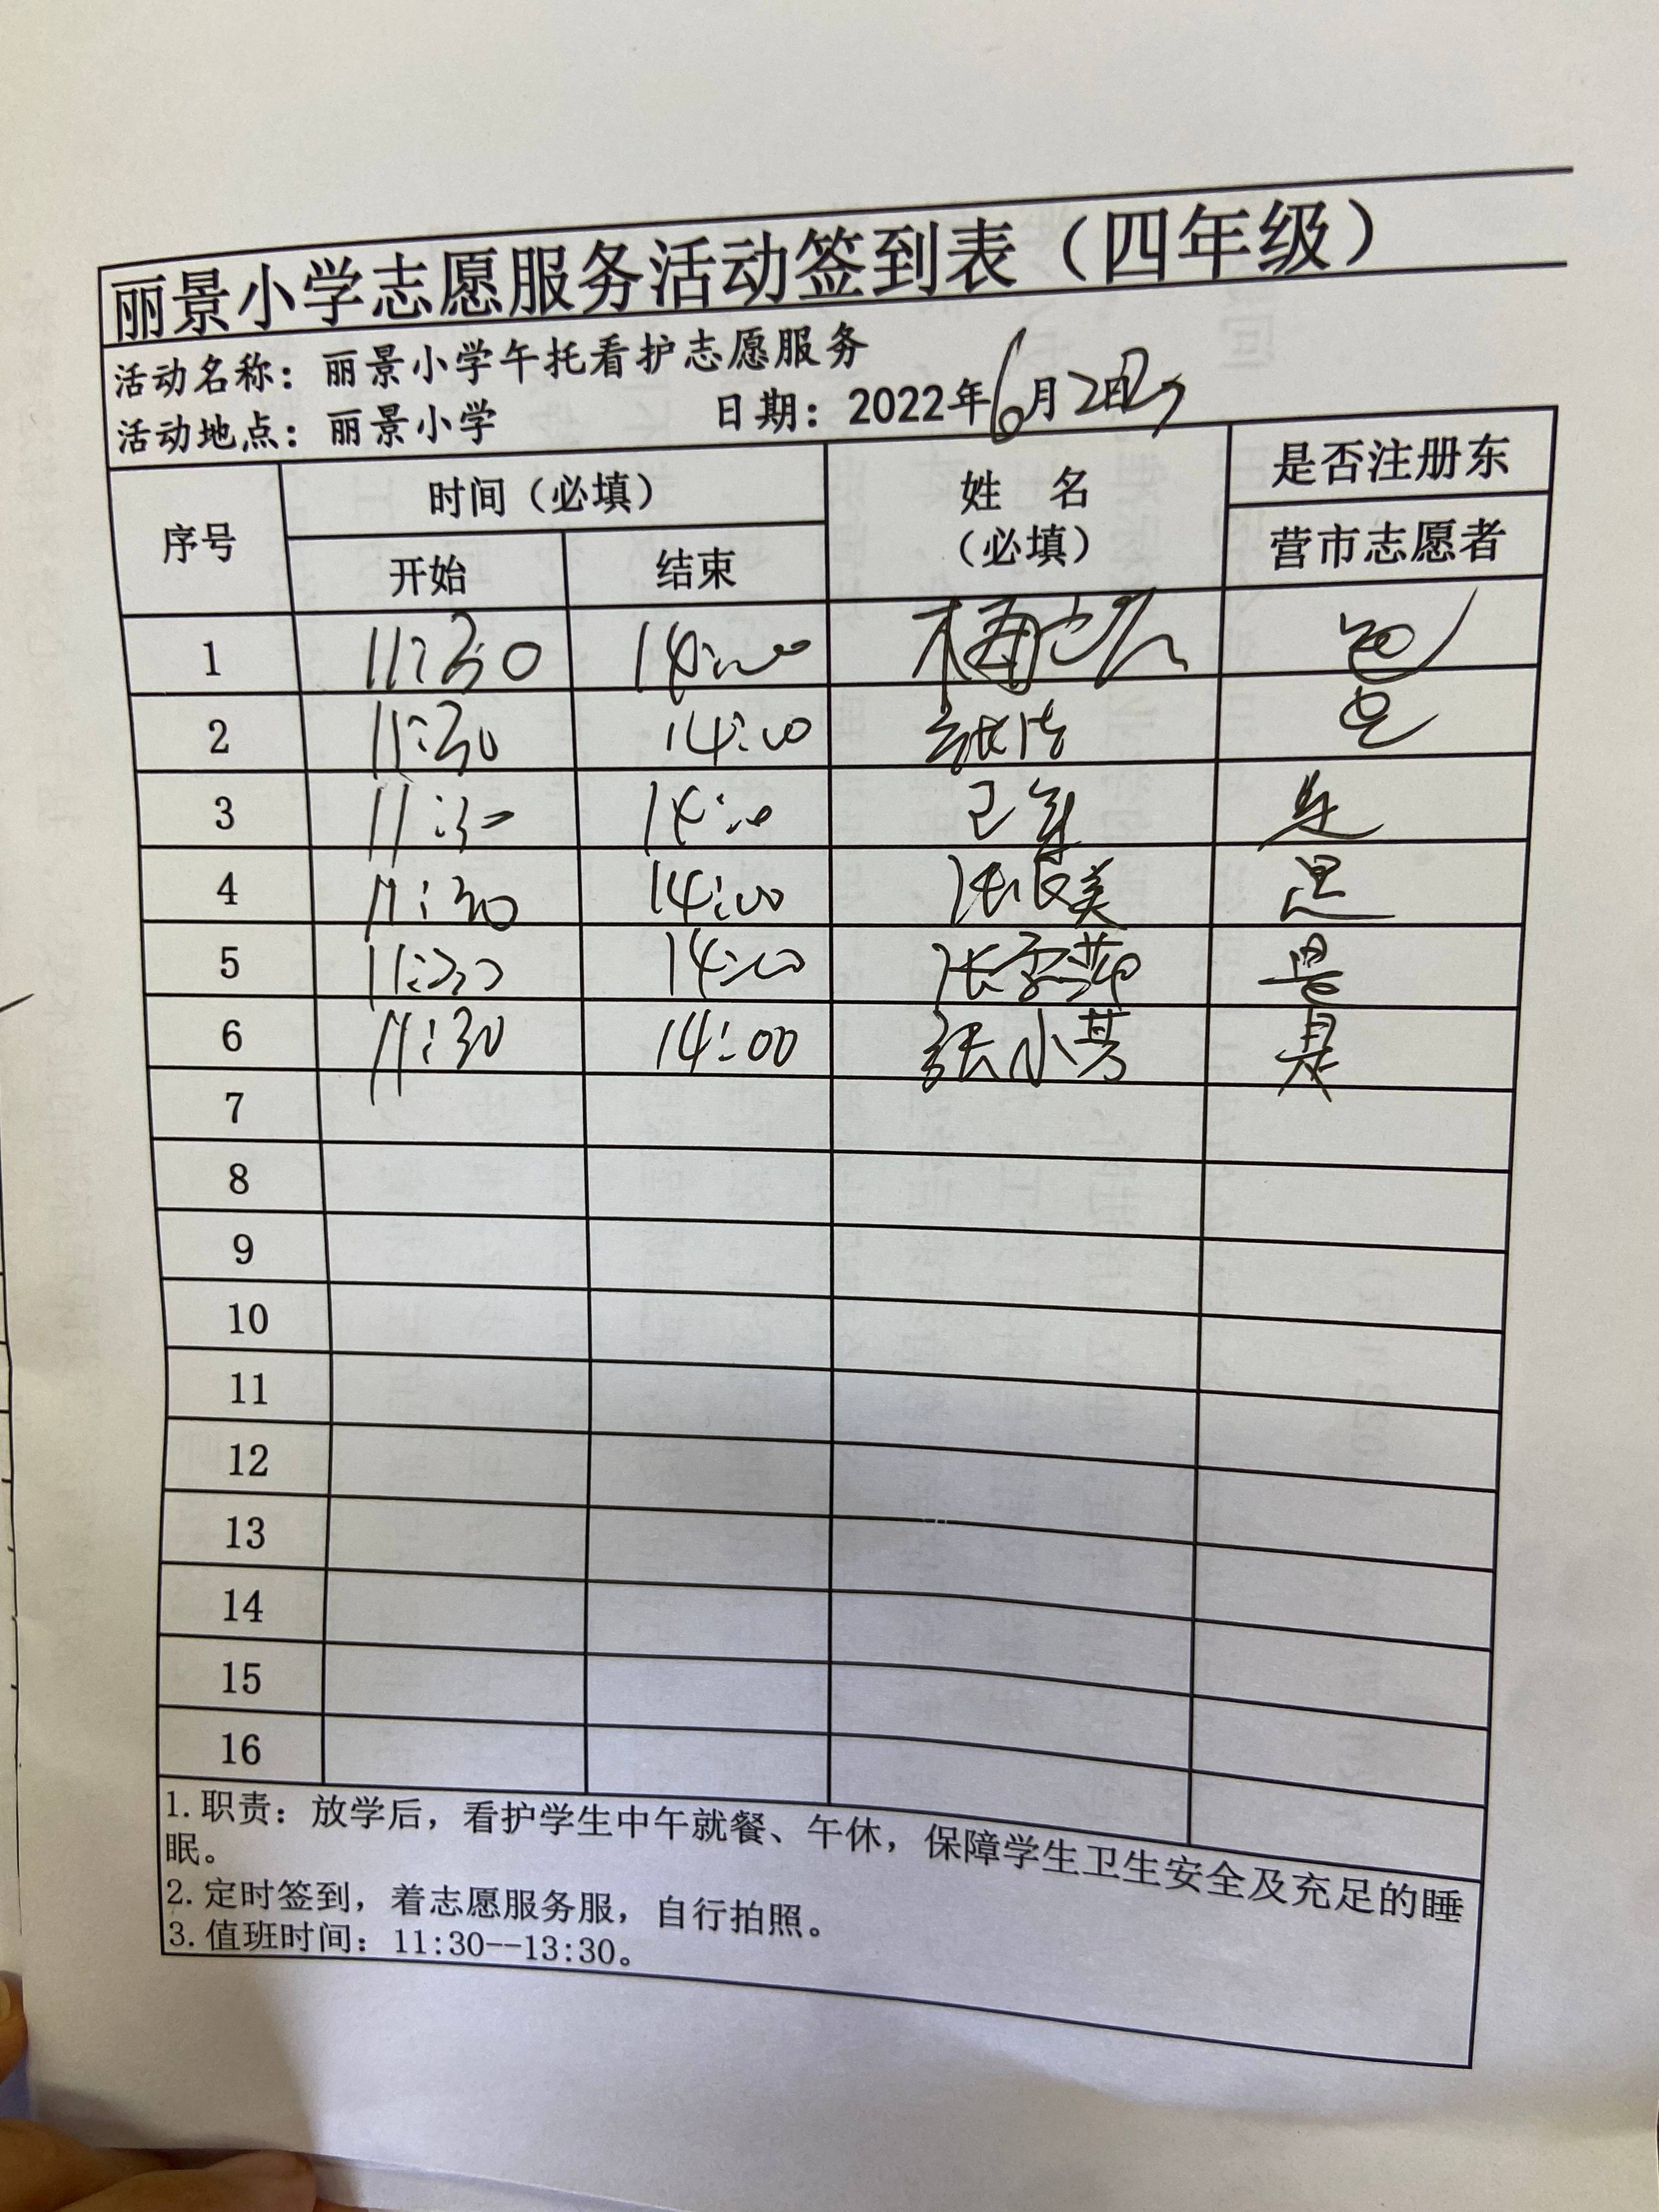 丽景小学志愿服务活动签到表（四年级）
活动名称：丽景小学午托看护志愿服务
活动地点：丽景小学 日期：2022年6月2日
序号 时间（必填） 姓 名 是否注册东
开始 结束 （必填） 营市志愿者
1 11:30 14:00 是
2 11:30 14:00 是
3 11:30 14:00 是
4 11:30 14:00 是
5 11:30 14:00 是
6 11:30 14:00 张小芹 是
7
8
9
10
11
12
13
14
15
16
1. 职责：放学后，看护学生中午就餐、午休，保障学生卫生安全及充足的睡
眠。
2. 定时签到，着志愿服务服，自行拍照。
3. 值班时间：11:30--13:30。